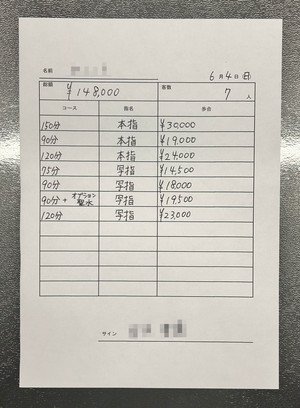 名前
6月4日(日)
総額 ¥148,000 客数 7人
コース 指名 歩合
150分 本指 ¥30,000
90分 本指 ¥19,000
120分 本指 ¥24,000
75分 写指 ¥14,500
90分 写指 ¥18,000
90分+オプション聖水 写指 ¥19,500
120分 写指 ¥23,000
サイン